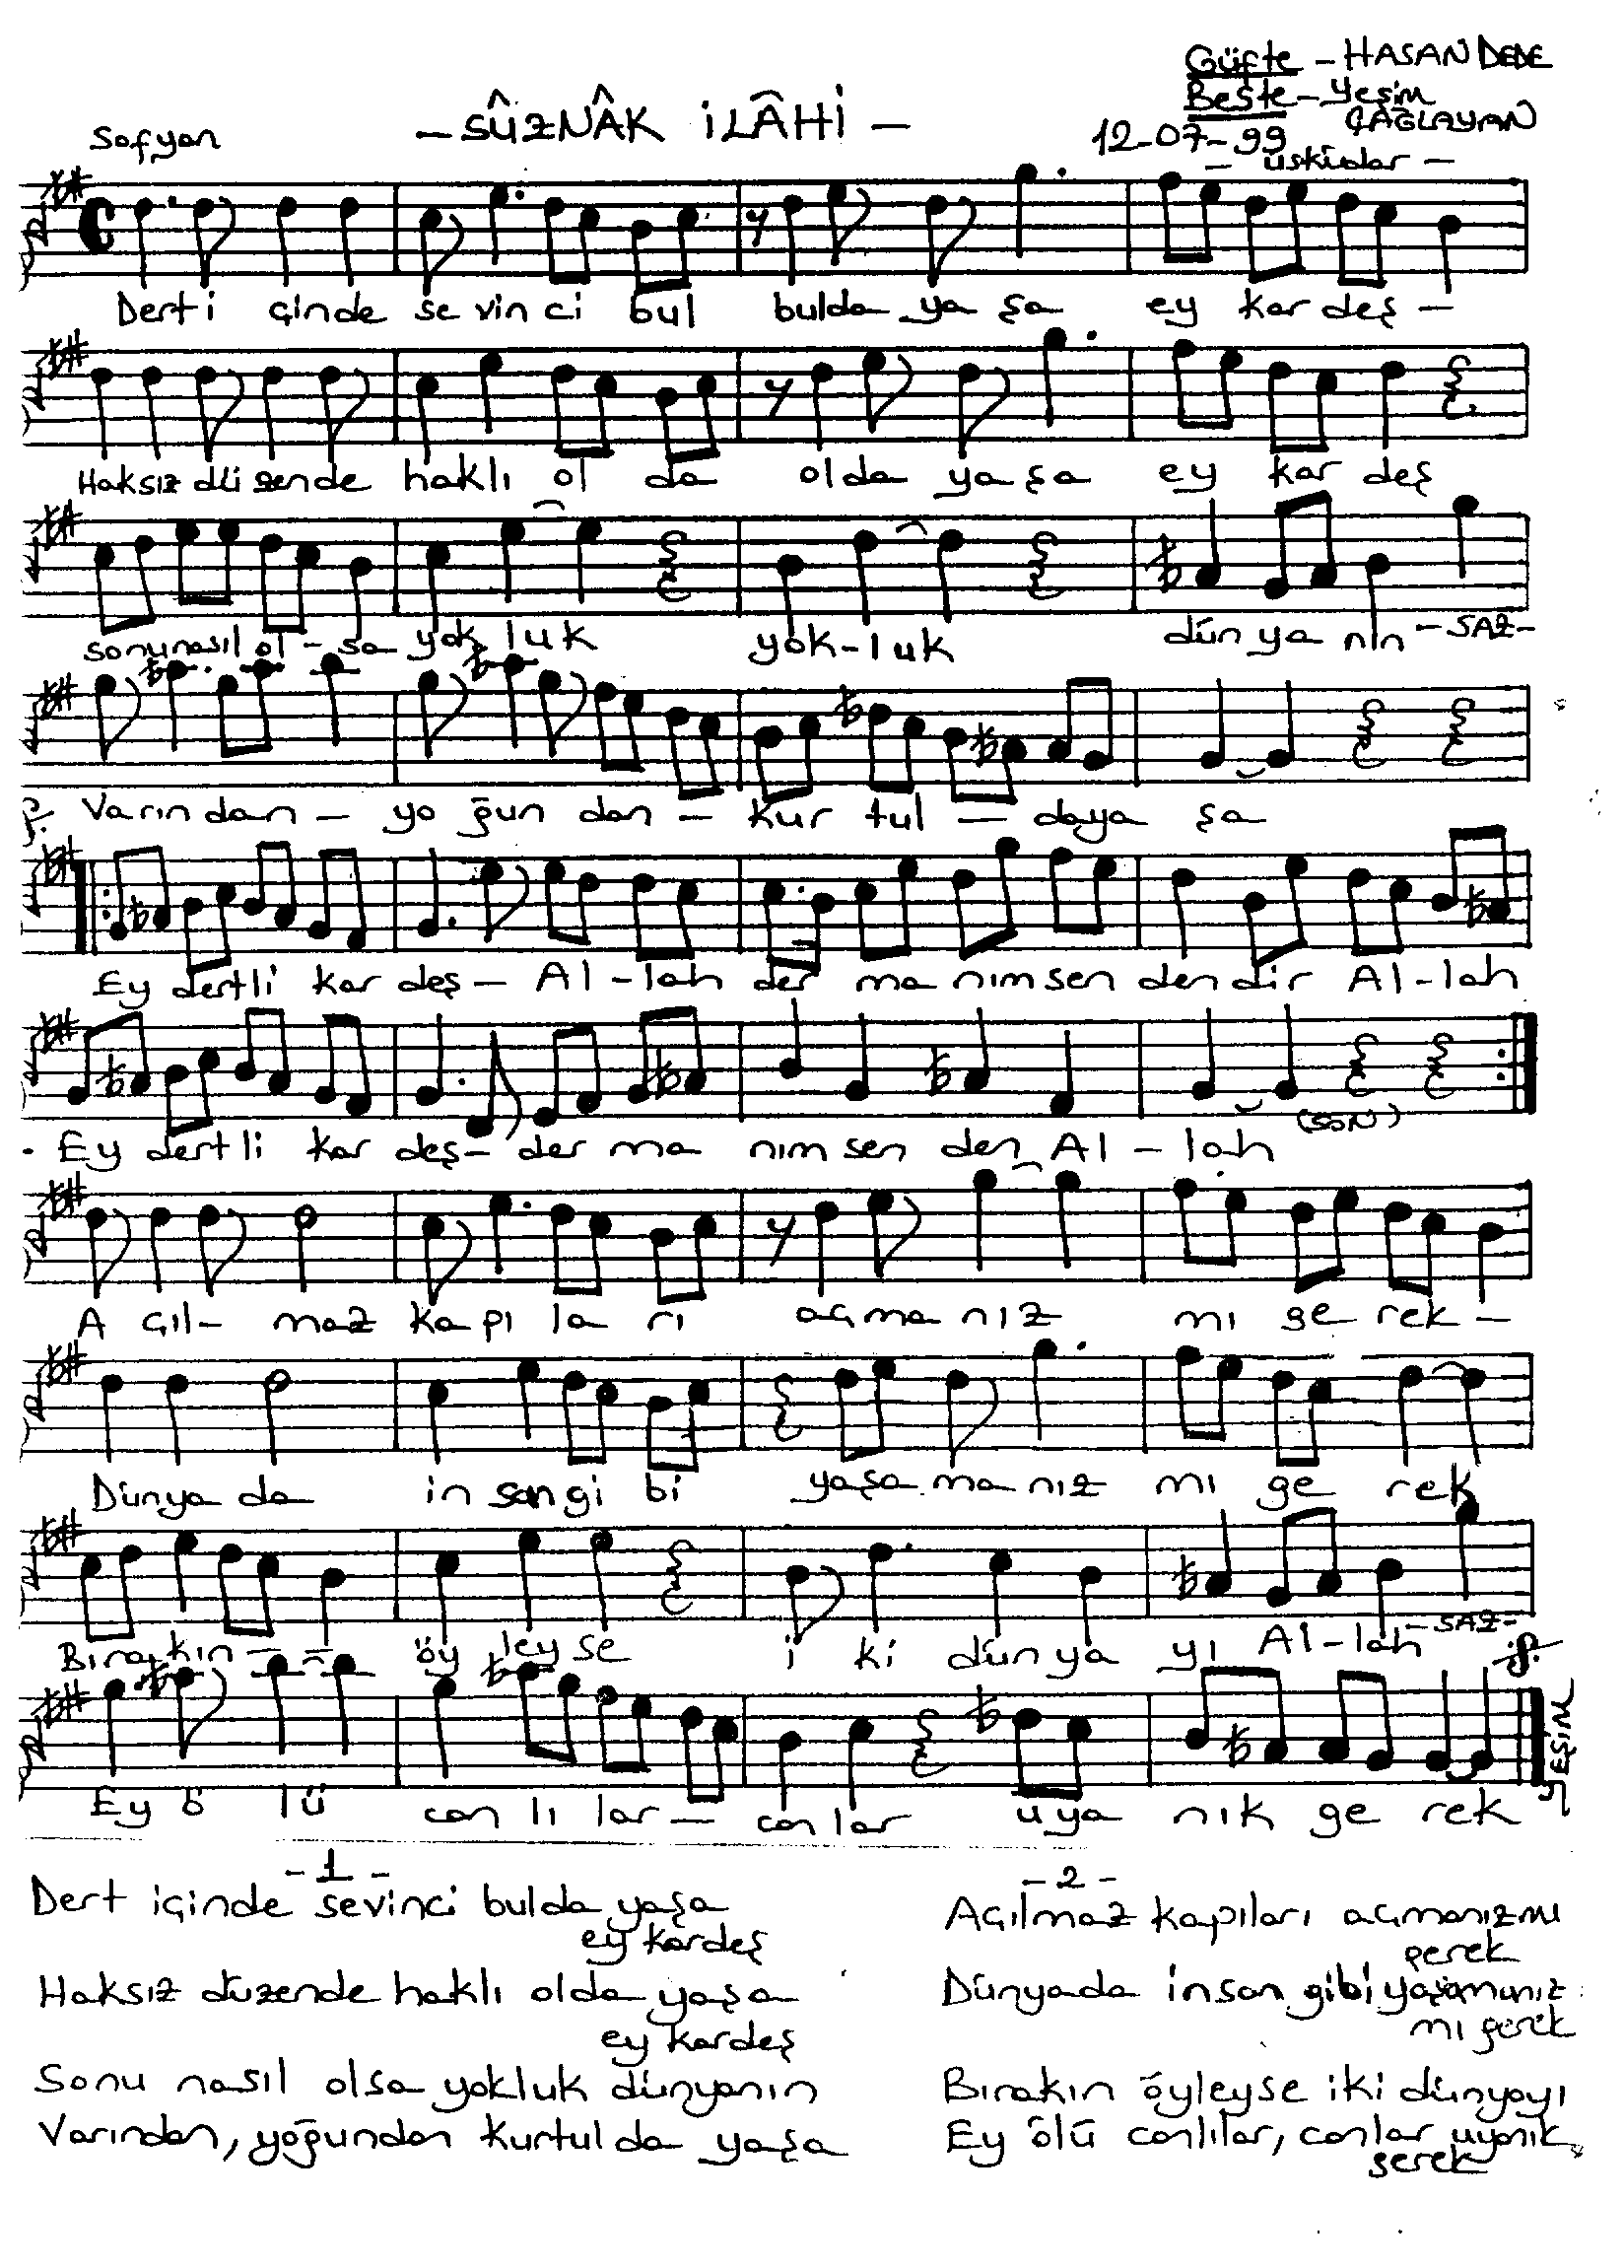 Güfte - HASAN DEDE
Beste - Yeşim
ÇAĞLAYAN
- SÛZNÂK İLÂHİ -
Sofyan
12-07-99
- üsküdar -
Dert i çinde se vin ci bul bulda ya şa ey kar deş -
Haksız dü zende haklı ol da olda ya şa ey kar deş
sonu nasıl ol - sa yok luk yok - luk dün ya nın - SAZ -
Varın dan - yo ğun dan - kur tul - daya şa
Ey dertli kar deş - Al - lah der ma nım sen den dir Al - lah
Ey dertli kar deş - der ma nım sen den Al - lah
(SON)
A çıl - maz ka pı la rı açma nız mı ge rek -
Dünya da in san gi bi yaşa ma nız mı ge rek
Bıra kın - - öy ley se i ki dün ya yı Al - lah - SAZ -
Ey ö lü can lı lar - can lar uya nık ge rek
YEŞİM
- 1 -
Dert içinde sevinci bulda yaşa
ey kardeş
Haksız düzende haklı olda yaşa
ey kardeş
Sonu nasıl olsa yokluk dünyanın
Varından, yoğundan kurtul da yaşa
- 2 -
Açılmaz kapıları açmanızmı
gerek
Dünyada insan gibi yaşamanız
mı gerek
Bırakın öyleyse iki dünyayı
Ey ölü canlılar, canlar uyanık
gerek